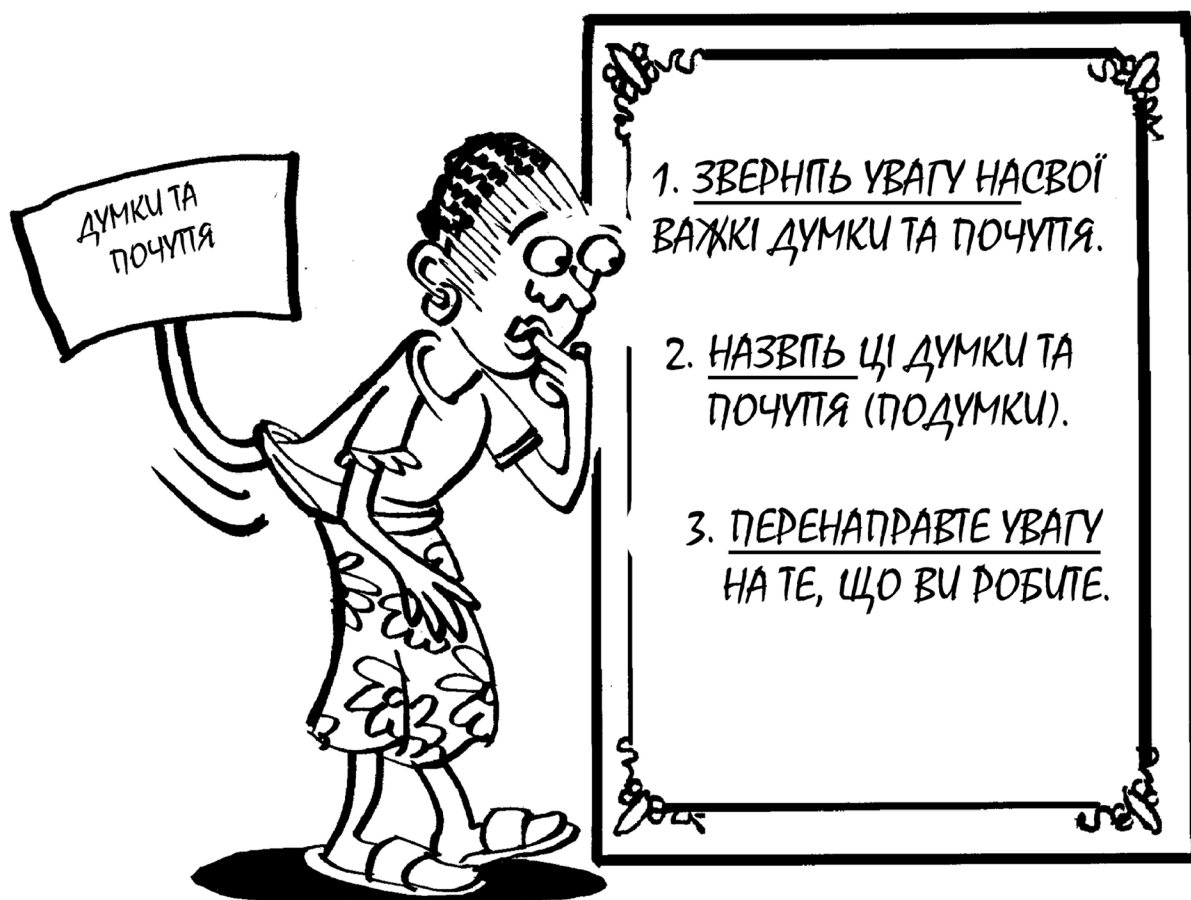 ДУМКИ ТА
ПОЧУТТЯ
1. ЗВЕРНІТЬ УВАГУ НАСВОЇ
ВАЖКІ ДУМКИ ТА ПОЧУТТЯ.
2. НАЗВІТЬ ЦІ ДУМКИ ТА
ПОЧУТТЯ (ПОДУМКИ).
3. ПЕРЕНАПРАВТЕ УВАГУ
НА ТЕ, ЩО ВИ РОБИТЕ.